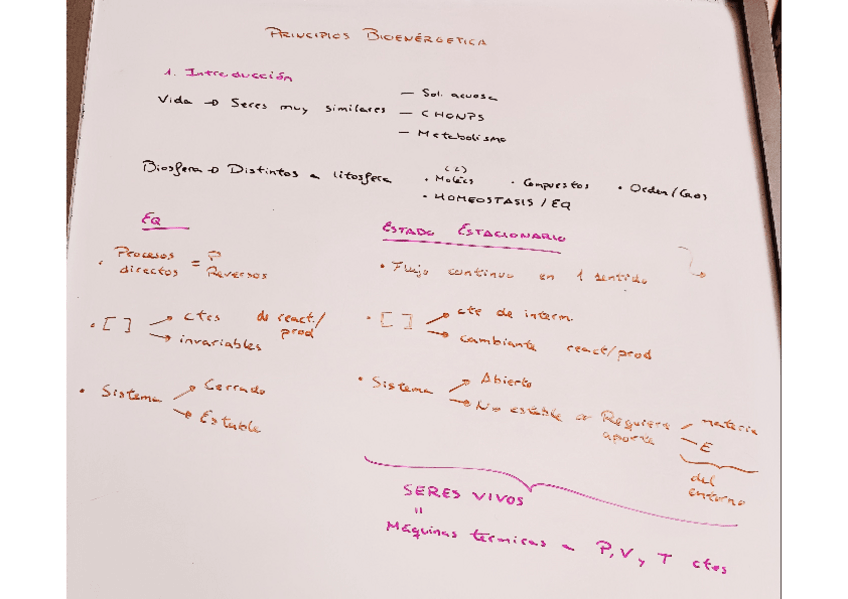 PRINCIPIOS BIOENÉRGETICA
1. Introducción
Vida → Seres muy similares
— Sol. acuosa
— CHONPS
— Metabolismo
Biosfera → Distintos a litosfera
(C)
• Molécs • Compuestos • Orden/Caos
• HOMEOSTASIS / EQ
EQ
• Procesos directos = P Reversos
• [ ] → ctes de react./prod
→ invariables
• Sistema → Cerrado
→ Estable
ESTADO ESTACIONARIO
• Flujo continuo en 1 sentido
• [ ] → cte de interm.
→ cambiante react/prod
• Sistema → Abierto
→ No estable → Requiere aporte
materia
E
del entorno
SERES VIVOS
=
Máquinas térmicas P, V y T ctes